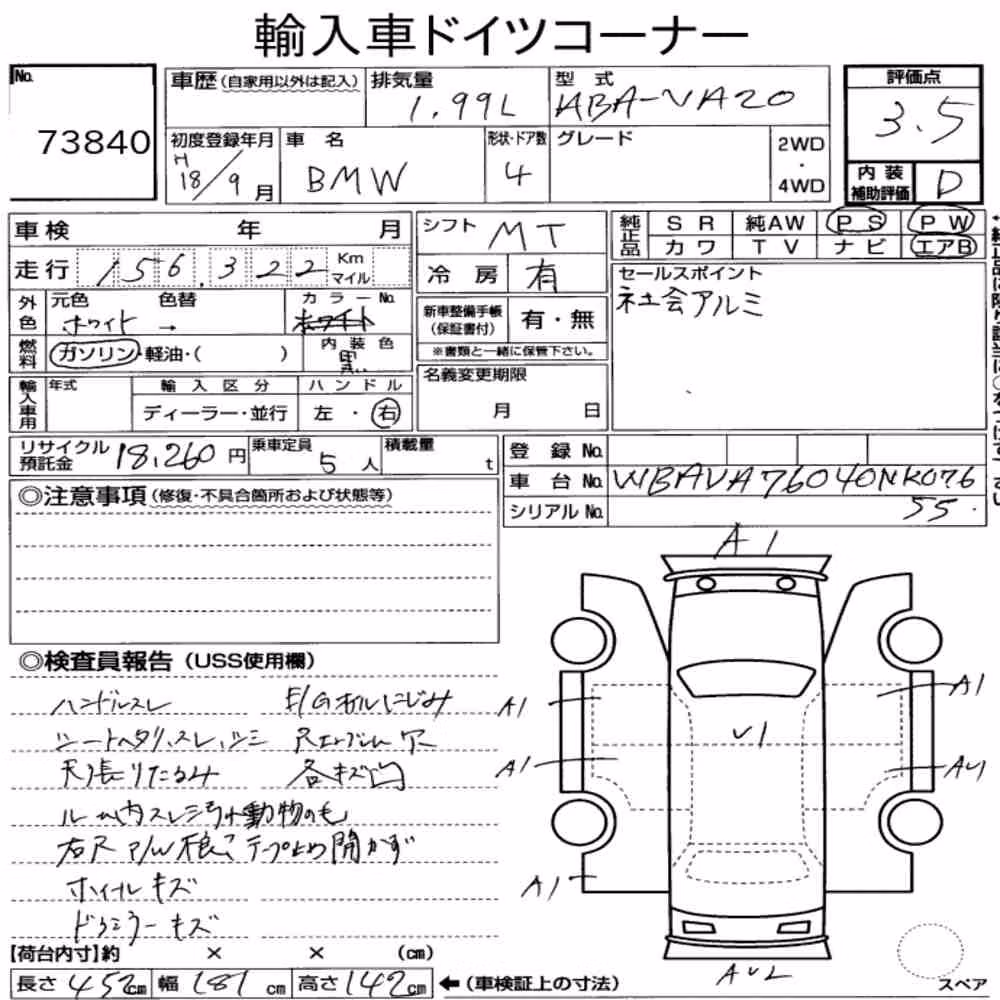 輸入車ドイツコーナー
No. 73840
車歴(自家用以外は記入) 排気量 1.99L 型式 ABA-VA20 評価点 3.5
初度登録年月 H 18/9月 車名 BMW 形状・ドア数 4 グレード 2WD・4WD 内装補助評価 D
車検 年 月 シフト MT 純正品 SR 純AW PS PW
カワ TV ナビ エアB
走行 156,322 Km マイル 冷房 有 セールスポイント
社会アルミ
外色 元色 ホワイト 色替 → カラーNo. ホワイト
新車整備手帳(保証書付) 有・無
※書類と一緒に保管下さい。
燃料 ガソリン・軽油・( ) 内装色 黒い
名義変更期限 月 日
輸入車用 年式 輸入区分 ディーラー・並行 ハンドル 左・右
リサイクル預託金 18,260円 乗車定員 5人 積載量 t
登録No.
車台No. WBAVA76040NK076
シリアルNo. 55.
◎注意事項(修復・不具合箇所および状態等)
◎検査員報告(USS使用欄)
ハンドルスレ E/Gオイルにじみ
シートヘタリ、スレ、シミ
天張りたるみ 各キズ凹
動物のも
開かず
ホイールキズ
ドアミラーキズ
A1
A1 A1
V1
A1 AU1
A1
AU2
スペア
【荷台内寸】約 × × (cm)
長さ 452cm 幅 181cm 高さ 142cm ←(車検証上の寸法)